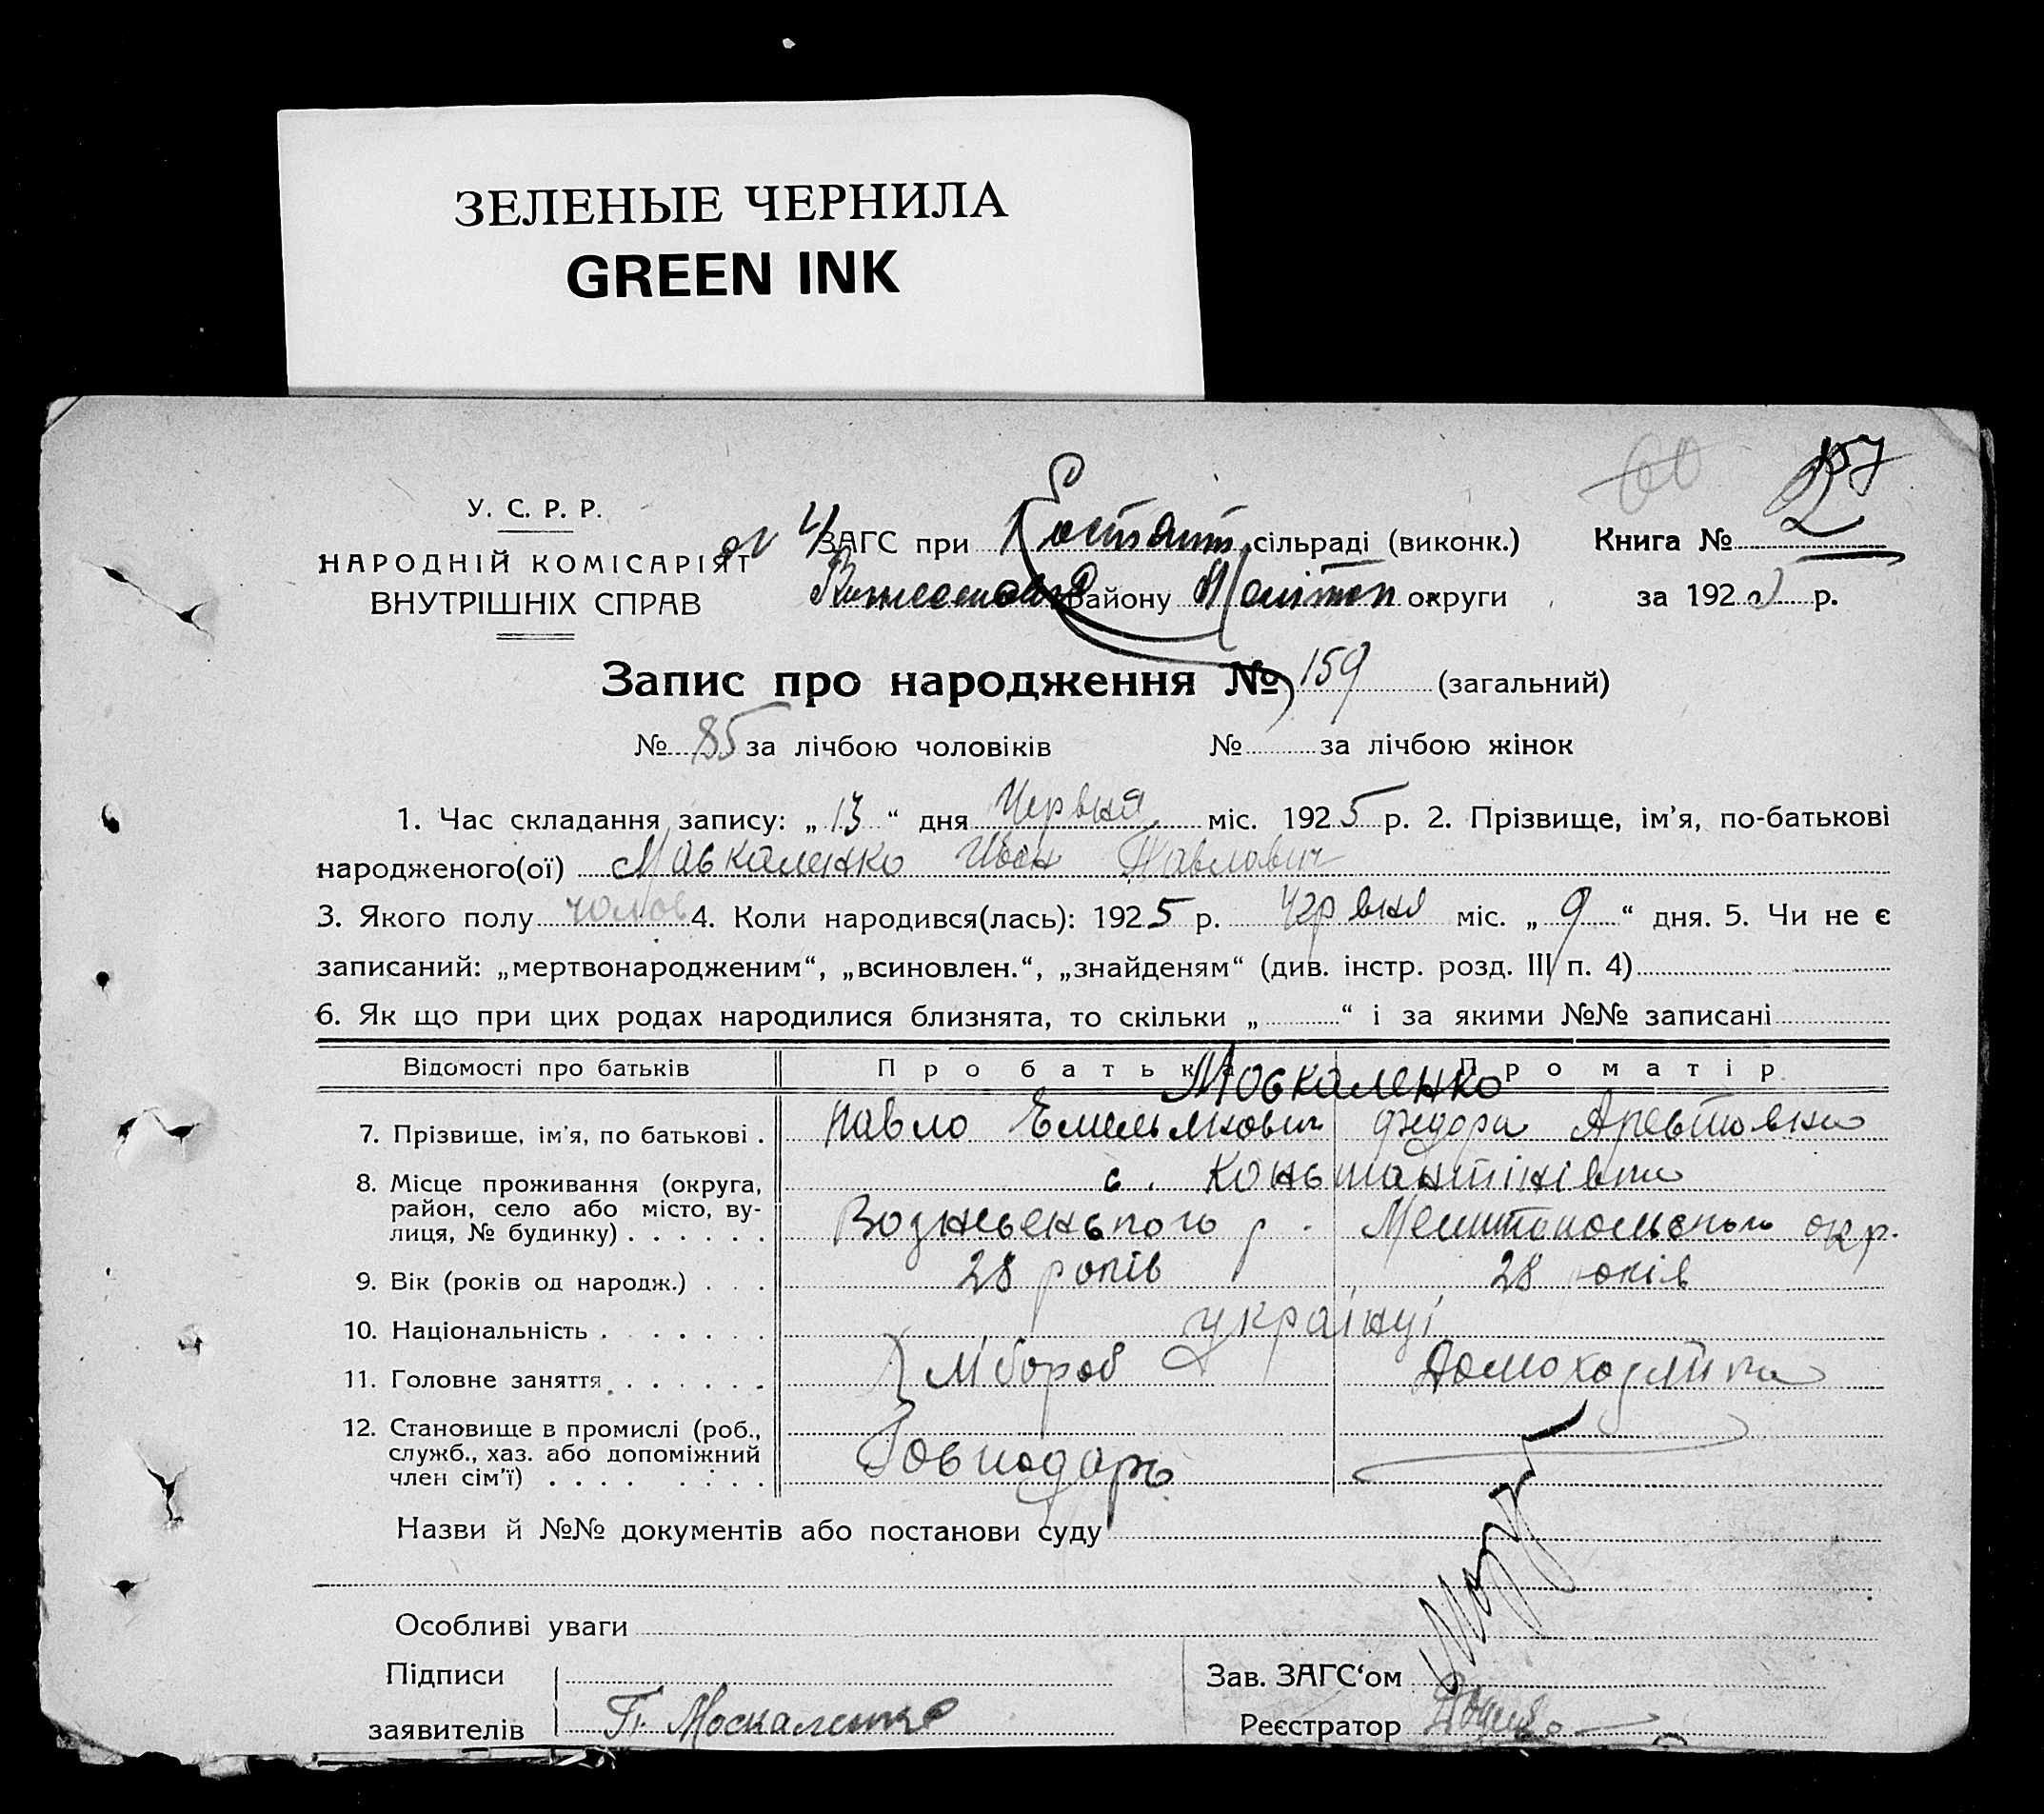 ЗЕЛЕНЫЕ ЧЕРНИЛА
GREEN INK
60
У. С. Р. Р.
НАРОДНІЙ КОМІСАРІЯТ
ВНУТРІШНІХ СПРАВ
ЗАГС при Констант. сільраді (виконк.) Книга № 2
району Меліт оп округи за 192 5 р.
Запис про народження № 159 (загальний)
№ 85 за лічбою чоловіків № за лічбою жінок
1. Час складання запису: „ 13 “ дня Червня міс. 192 5 р. 2. Прізвище, ім'я, по-батькові
народженого(ої) Москаленко Иван Павлович
3. Якого полу чолов 4. Коли народився(лась): 192 5 р. Червня міс. „ 9 “ дня. 5. Чи не є
записаний: „мертвонародженим“, „всиновлен.“, „знайденям“ (див. інстр. розд. III п. 4)
6. Як що при цих родах народилися близнята, то скільки „ “ і за якими №№ записані
Відомості про батьків Про батька Про матір
Москаленко
7. Прізвище, ім'я, по батькові . Павло Емельянович Федора
8. Місце проживання (округа, с. Константінівка
район, село або місто, ву-
лиця, № будинку) . . . . . . Вознесенського р. Мелитопольского окр.
9. Вік (років од народж.) . . . 28 років 28 років
10. Національність . . . . . . . українці
11. Головне заняття . . . . . . Хлібороб Домохозяйка
12. Становище в промислі (роб.,
служб., хаз. або допоміжний Господарь
член сім'ї) . . . . . . . .
Назви й №№ документів або постанови суду
Особливі уваги
Підписи Зав. ЗАГС‘ом
заявителів П. Москаленко Реєстратор